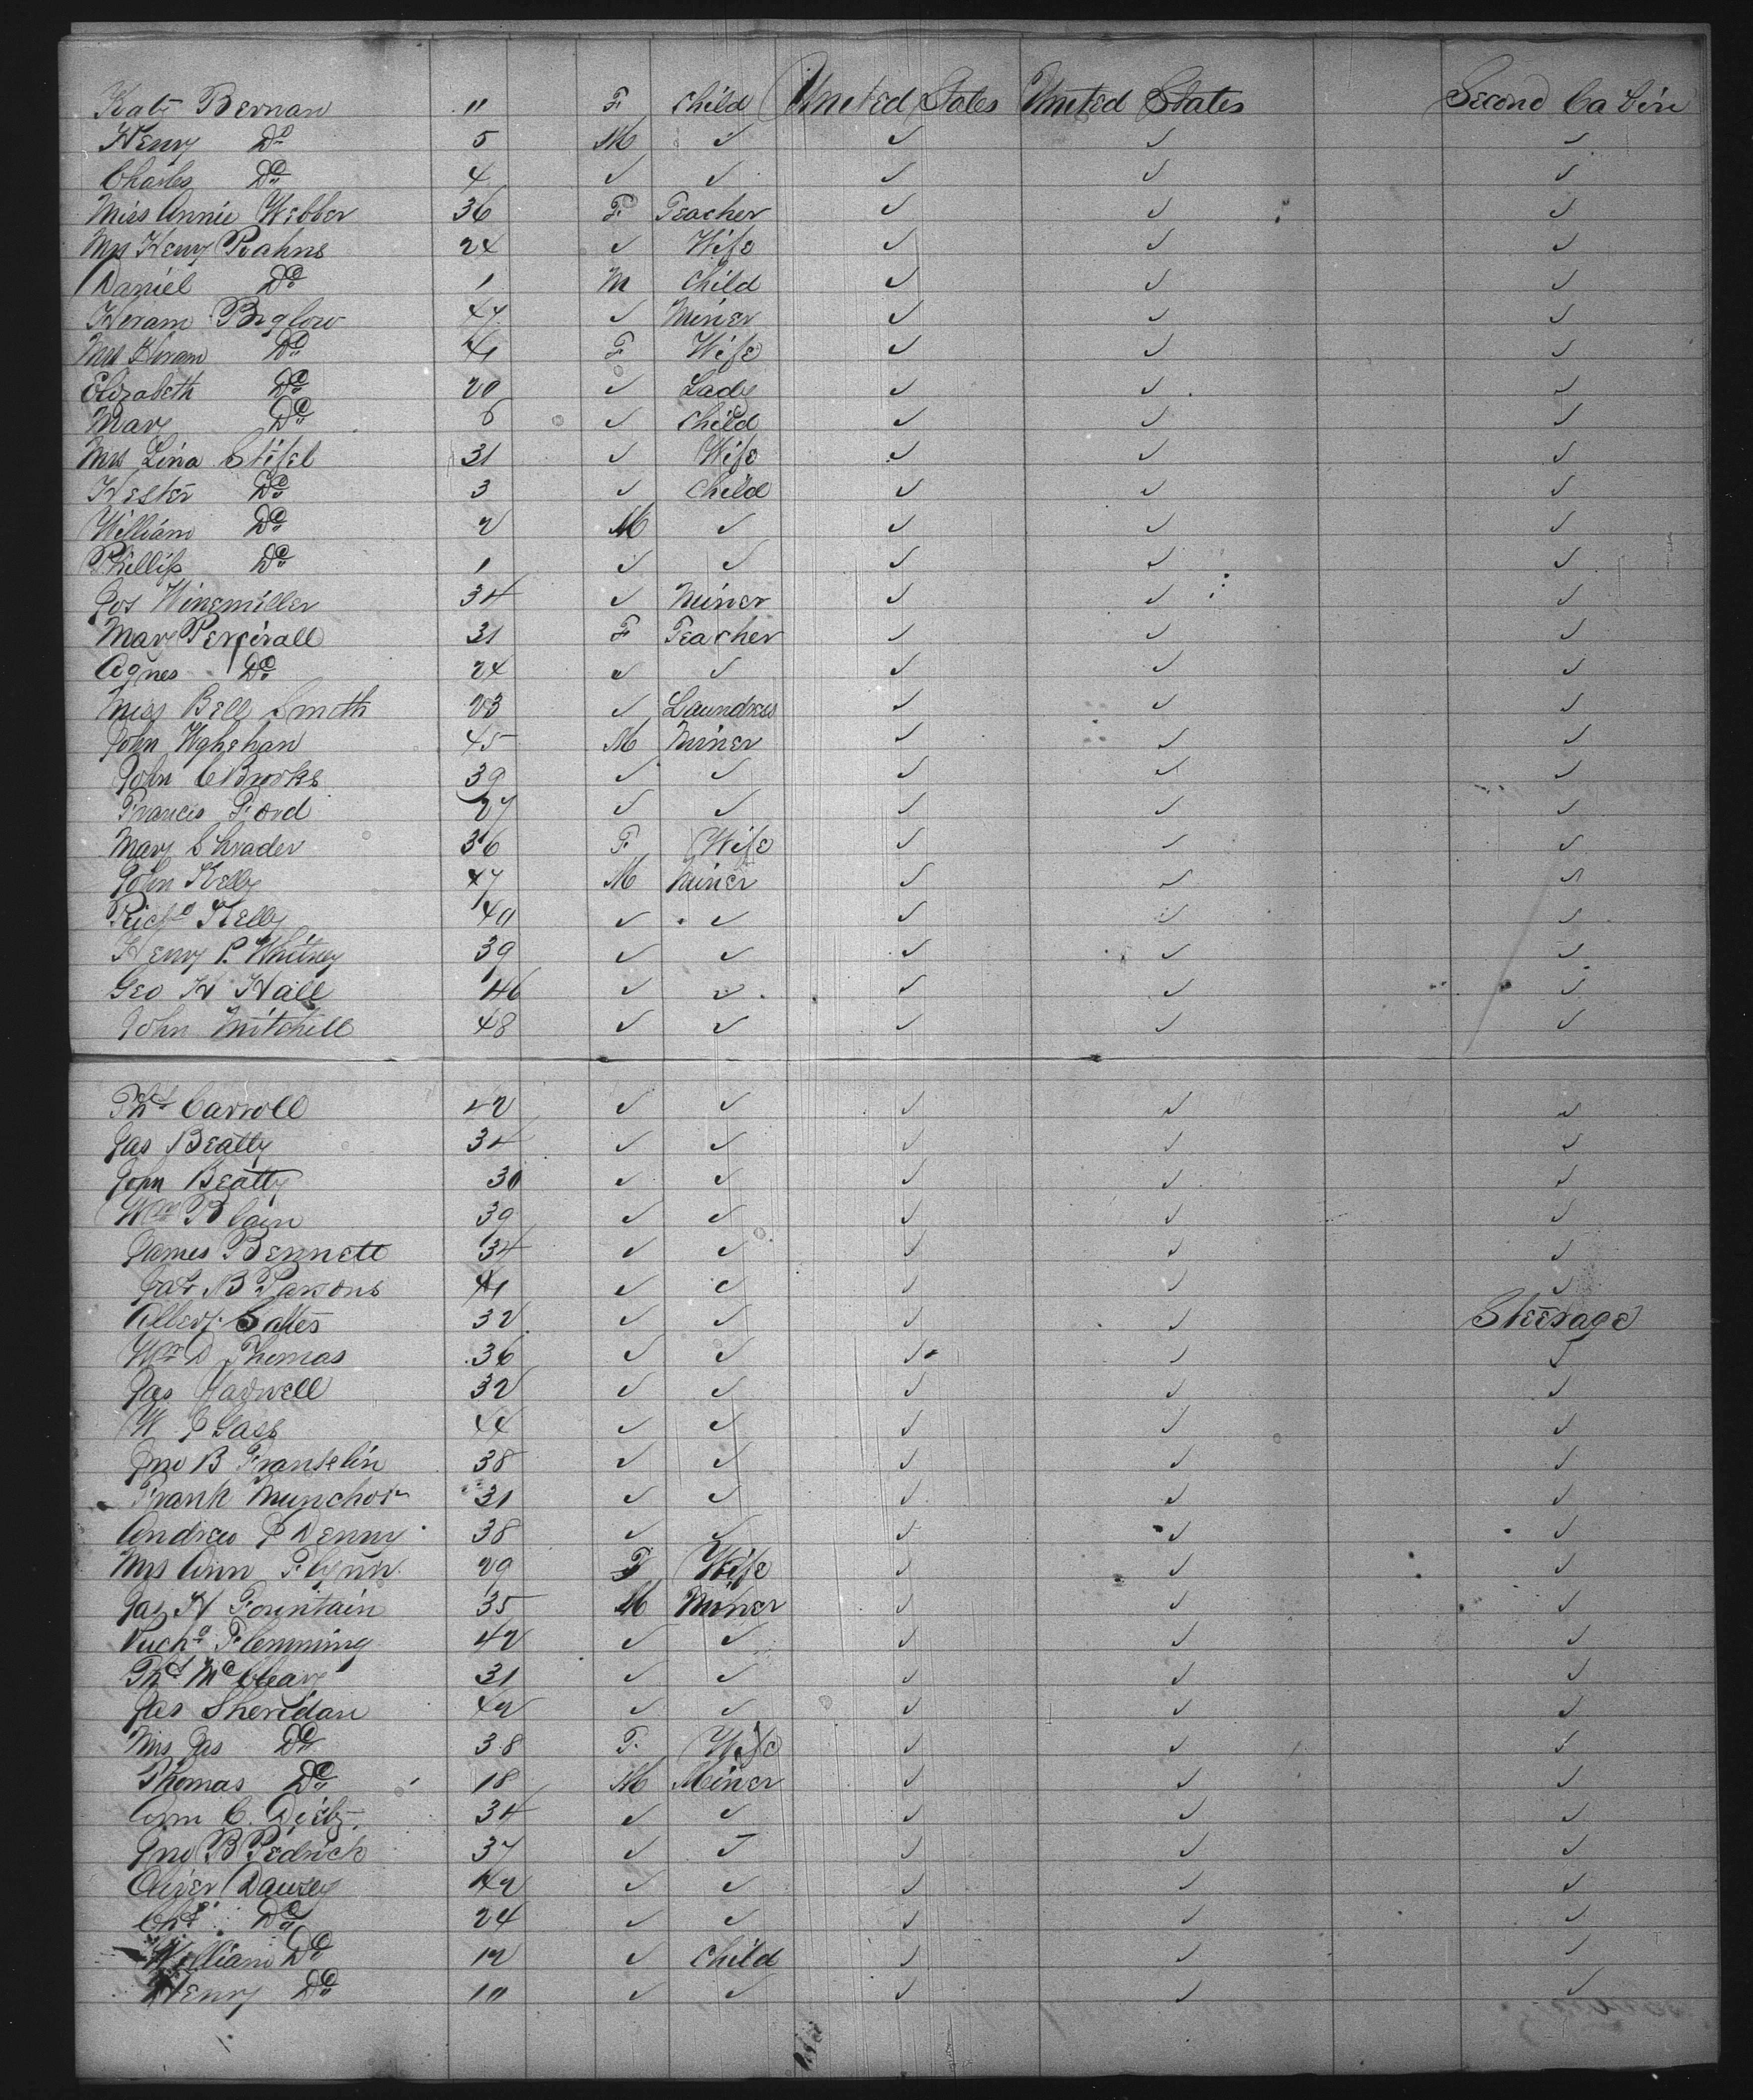 Katy Bernan 11 F. Child United States United States Second Cabin
Henry Do 5 M ✓ ✓ ✓ ✓
Charles Do 4 ✓ ✓ ✓ ✓ ✓
Miss Annie Webber 36 F Teacher ✓ ✓ ✓
Mrs Henry Rahns 24 ✓ Wife ✓ ✓ ✓
Daniel Do 1 M Child ✓ ✓ ✓
Hiram Biglow 47 ✓ Miner ✓ ✓ ✓
Mrs Hiram Do 41 F Wife ✓ ✓ ✓
Elizabeth Do 20 ✓ Lady ✓ ✓ ✓
Mary Do 6 ✓ Child ✓ ✓ ✓
Mrs Lina Stifel 31 ✓ Wife ✓ ✓ ✓
Hester Do 3 ✓ Child ✓ ✓ ✓
William Do 2 M ✓ ✓ ✓ ✓
Phillip Do 1 ✓ ✓ ✓ ✓ ✓
Jos Winemiller 34 ✓ Miner ✓ ✓ ✓
Mary Percivall 31 F Teacher ✓ ✓ ✓
Agnes Do 24 ✓ ✓ ✓ ✓ ✓
Miss Bell Smith 23 ✓ Laundress ✓ ✓ ✓
John 45 M Miner ✓ ✓ ✓
John C Brooks 39 ✓ ✓ ✓ ✓ ✓
Francis Ford 27 ✓ ✓ ✓ ✓ ✓
Mary Shrader 36 F. Wife ✓ ✓ ✓
John Kelly 47 M Miner ✓ ✓ ✓
Richd Kelly 40 ✓ ✓ ✓ ✓ ✓
Henry P. Whitney 39 ✓ ✓ ✓ ✓ ✓
Geo H Hall 46 ✓ ✓ ✓ ✓ ✓
John Mitchell 48 ✓ ✓ ✓ ✓ ✓
Carroll 42 ✓ ✓ ✓ ✓ ✓
Jas Beatty 34 ✓ ✓ ✓ ✓ ✓
John Beatty 30 ✓ ✓ ✓ ✓ ✓
Wm Blain 39 ✓ ✓ ✓ ✓ ✓
James Bennett 34 ✓ ✓ ✓ ✓ ✓
B Parsons 41 ✓ ✓ ✓ ✓ ✓
Albert 32 ✓ ✓ ✓ ✓ Steerage
Wm D Thomas 36 ✓ ✓ ✓ ✓ ✓
Jas 32 ✓ ✓ ✓ ✓ ✓
W 44 ✓ ✓ ✓ ✓ ✓
Jno B Franklin 38 ✓ ✓ ✓ ✓ ✓
Frank Munchor 31 ✓ ✓ ✓ ✓ ✓
Andrew P Denny 38 ✓ ✓ ✓ ✓ ✓
Mrs Ann Flynn 29 F Wife ✓ ✓ ✓
Jas H Fountain 35 M Miner ✓ ✓ ✓
Richd Flemming 42 ✓ ✓ ✓ ✓ ✓
McCleary 31 ✓ ✓ ✓ ✓ ✓
Jas Sheridan 42 ✓ ✓ ✓ ✓ ✓
Mrs Jas Do 38 F. Wife ✓ ✓ ✓
Thomas Do 18 M Miner ✓ ✓ ✓
C. Dietz 34 ✓ ✓ ✓ ✓ ✓
Jno B Pedrick 37 ✓ ✓ ✓ ✓ ✓
Oliver Dausey 42 ✓ ✓ ✓ ✓ ✓
Do 24 ✓ ✓ ✓ ✓ ✓
William Do 12 ✓ Child ✓ ✓ ✓
Henry Do 10 ✓ ✓ ✓ ✓ ✓